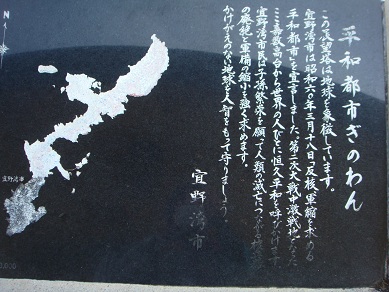 平和都市ぎのわん
この展望塔は地球を象徴しています。
宜野湾市は昭和六〇年三月十八日「反核、軍縮を求める
平和都市」を宣言しました。第二次大戦中激戦地となった
ここ嘉数高台から世界の人びとに恒久平和を呼びかけます。
宜野湾市民は子孫繁栄を願って人類の滅亡につながる核兵器
の廃絶と軍備の縮小を強く求めます。
かけがえのない地球を人智をもって守りましょう。
宜野湾市
N
宜野湾市